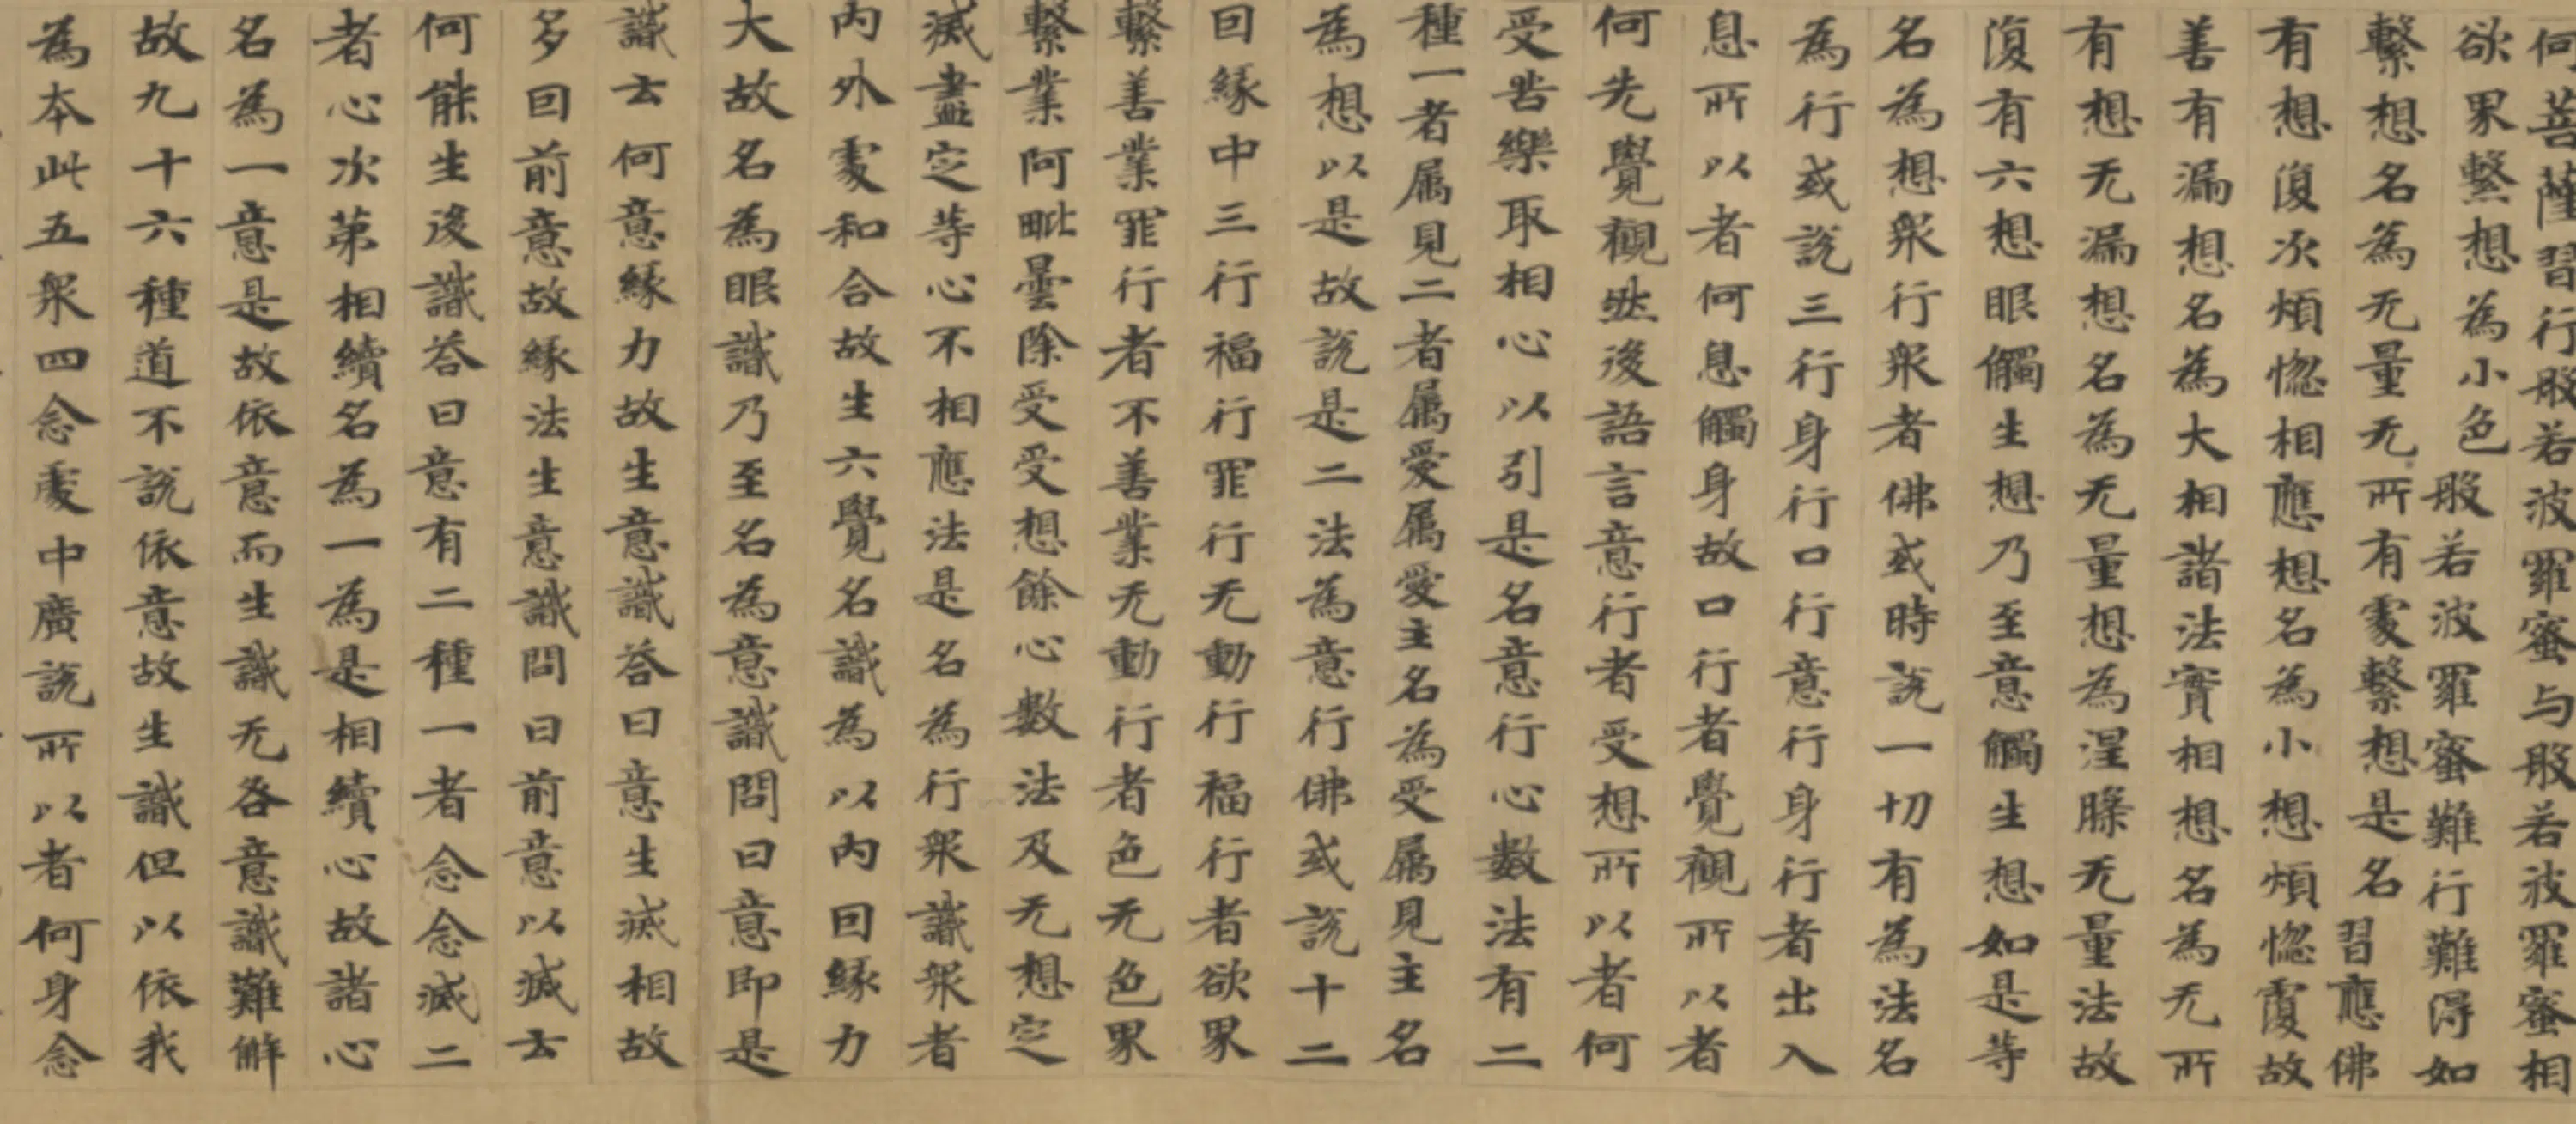 何菩薩習行般若波羅蜜与般若波羅蜜相
欲界繫想為小色般若波羅蜜難行難得如
繫想名為无量无所有處繫想是名習應佛
有想復次煩惚相應想名為小想煩惚覆故
善有漏想名為大相諸法實相想名為无所
有想无漏想名為无量想為涅槃无量法故
復有六想眼觸生想乃至意觸生想如是等
名為想衆行衆者佛或時說一切有為法名
為行或說三行身行口行意行身行者出入
息所以者何息觸身故口行者覺觀所以者
何先覺觀然後語言意行者受想所以者何
受苦樂取相心以引是名意行心數法有二
種一者属見二者属愛属愛主名為受属見主名
為想以是故說是二法為意行佛或說十二
因緣中三行福行罪行无動行福行者欲界
繫善業罪行者不善業无動行者色无色界
繫業阿毗曇除受受想餘心數法及无想定
滅盡定等心不相應法是名為行衆識衆者
內外處和合故生六覺名識為以內因緣力
大故名為眼識乃至名為意識問曰意即是
識云何意緣力故生意識答曰意生滅相故
多因前意故緣法生意識問曰前意以滅云
何能生後識答曰意有二種一者念念滅二
者心次第相續名為一為是相續心故諸心
名為一意是故依意而生識无咎意識難解
故九十六種道不說依意故生識但以依我
為本此五衆四念處中廣說所以者何身念